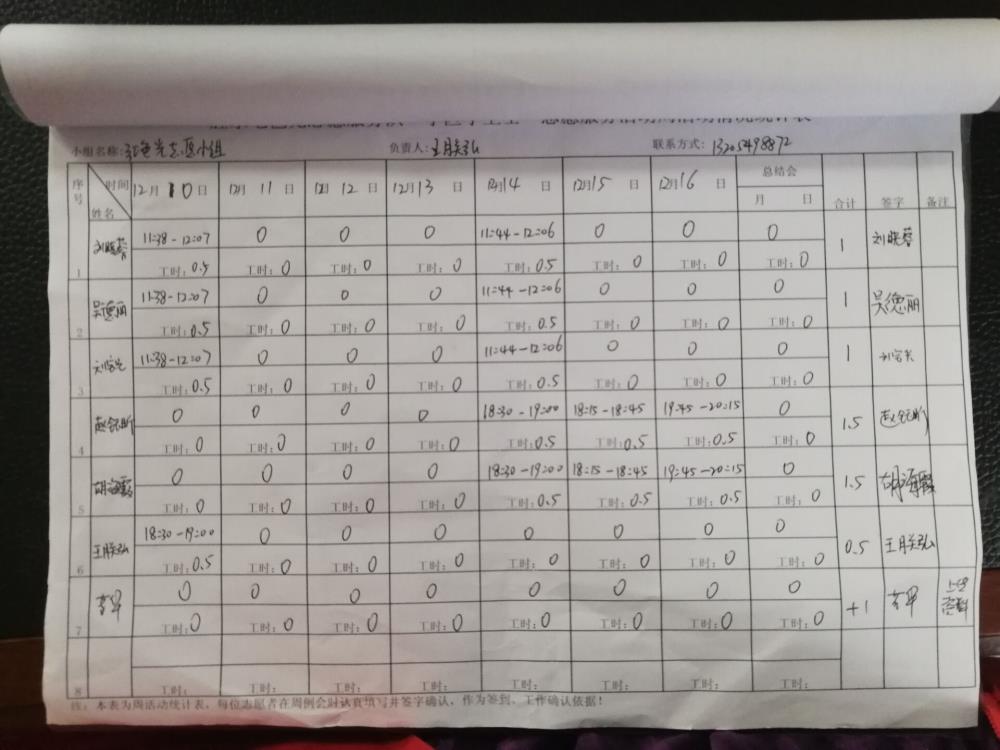 小组名称: 红色光志愿小组 负责人: 王朕弘 联系方式: 13205498872
序号 时间 姓名 12月10日 12月11日 12月12日 12月13日 12月14日 12月15日 12月16日 总结会 月 日 合计 签字 备注
1 刘晓蓉 11:38-12:07 0 0 0 11:44-12:06 0 0 0 1 刘晓蓉
工时:0.5 工时:0 工时:0 工时:0 工时:0.5 工时:0 工时:0 工时:0
2 吴德丽 11:38-12:07 0 0 0 11:44-12:06 0 0 0 1 吴德丽
工时:0.5 工时:0 工时:0 工时:0 工时:0.5 工时:0 工时:0 工时:0
3 11:38-12:07 0 0 0 11:44-12:06 0 0 0 1
工时:0.5 工时:0 工时:0 工时:0 工时:0.5 工时:0 工时:0 工时:0
4 0 0 0 0 18:30-19:00 18:15-18:45 19:45-20:15 0 1.5
工时:0 工时:0 工时:0 工时:0 工时:0.5 工时:0.5 工时:0.5 工时:0
5 胡海霞 0 0 0 0 18:30-19:00 18:15-18:45 19:45-20:15 0 1.5 胡海霞
工时:0 工时:0 工时:0 工时:0 工时:0.5 工时:0.5 工时:0.5 工时:0
6 王朕弘 18:30-19:00 0 0 0 0 0 0 0 0.5 王朕弘
工时:0.5 工时:0 工时:0 工时:0 工时:0 工时:0 工时:0 工时:0
7 0 0 0 0 0 0 0 0 +1
工时:0 工时:0 工时:0 工时:0 工时:0 工时:0 工时:0 工时:0
8 工时: 工时: 工时: 工时: 工时: 工时: 工时: 工时:
注: 本表为周活动统计表, 每位志愿者在周例会时认真填写并签字确认, 作为签到、工作确认依据!